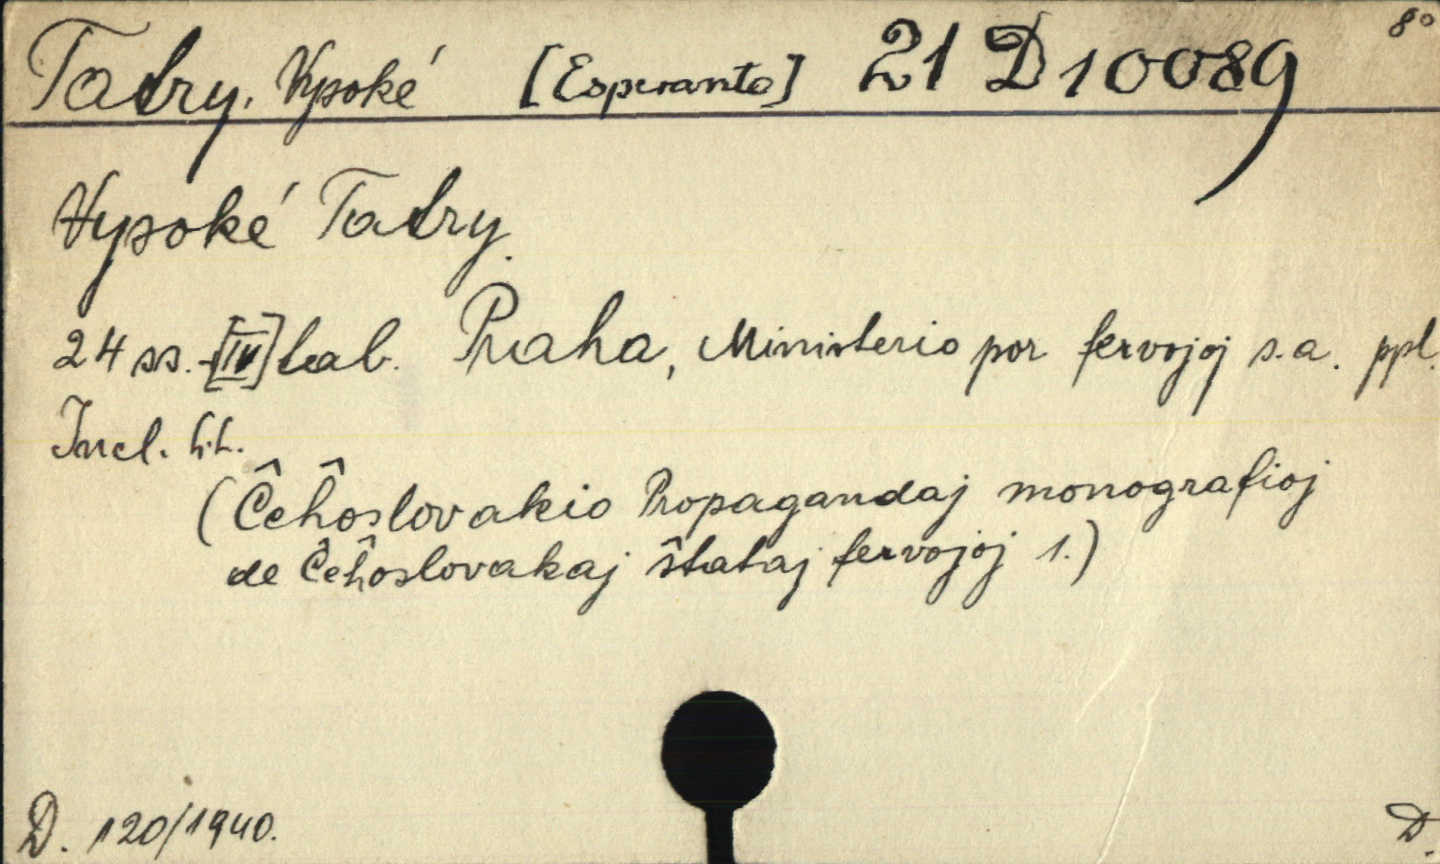 Tatry, Vysoké [Esperanto] 21 D 10089 8°
Vysoké Tatry.
24 ss. [IV] tab. Praha, Ministerio por fervojoj s.a. ppl.
Incl. h.t.
(Ĉeĥoslovakio Propagandaj monografioj
de Ĉeĥoslovakaj ŝtataj fervojoj 1.)
D. 120/1940. D.